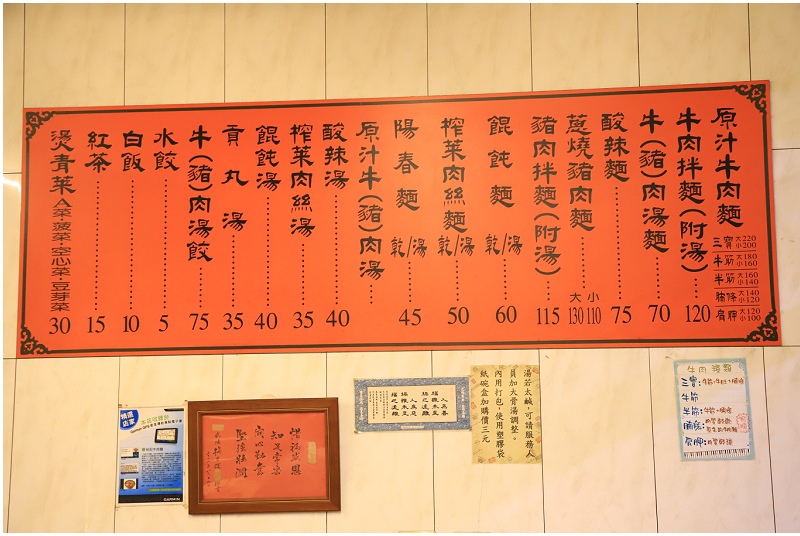 原汁牛肉麵
三寶 大220 小200
牛筋 大180 小160
半筋 大160 小140
腩條 大140 小120
肩胛 大120 小100
牛肉拌麵(附湯) 120
牛(豬)肉湯麵 70
酸辣麵 75
蔥燒豬肉麵 大130 小110
豬肉拌麵(附湯) 115
餛飩麵 乾/湯 60
榨菜肉絲麵 乾/湯 50
陽春麵 乾/湯 45
原汁牛(豬)肉湯
酸辣湯 40
榨菜肉絲湯 35
餛飩湯 40
貢丸湯 35
牛(豬)肉湯餃 75
水餃 5
白飯 10
紅茶 15
燙青菜 A菜·菠菜·空心菜·豆芽菜 30
牛肉湯麵
三寶:
牛筋
半筋:
湯若太鹹，可請服務人
員加大骨湯調整。
內用打包，使用塑膠袋
紙碗盒加購價三元
惜福感恩
知足常樂
GARMIN